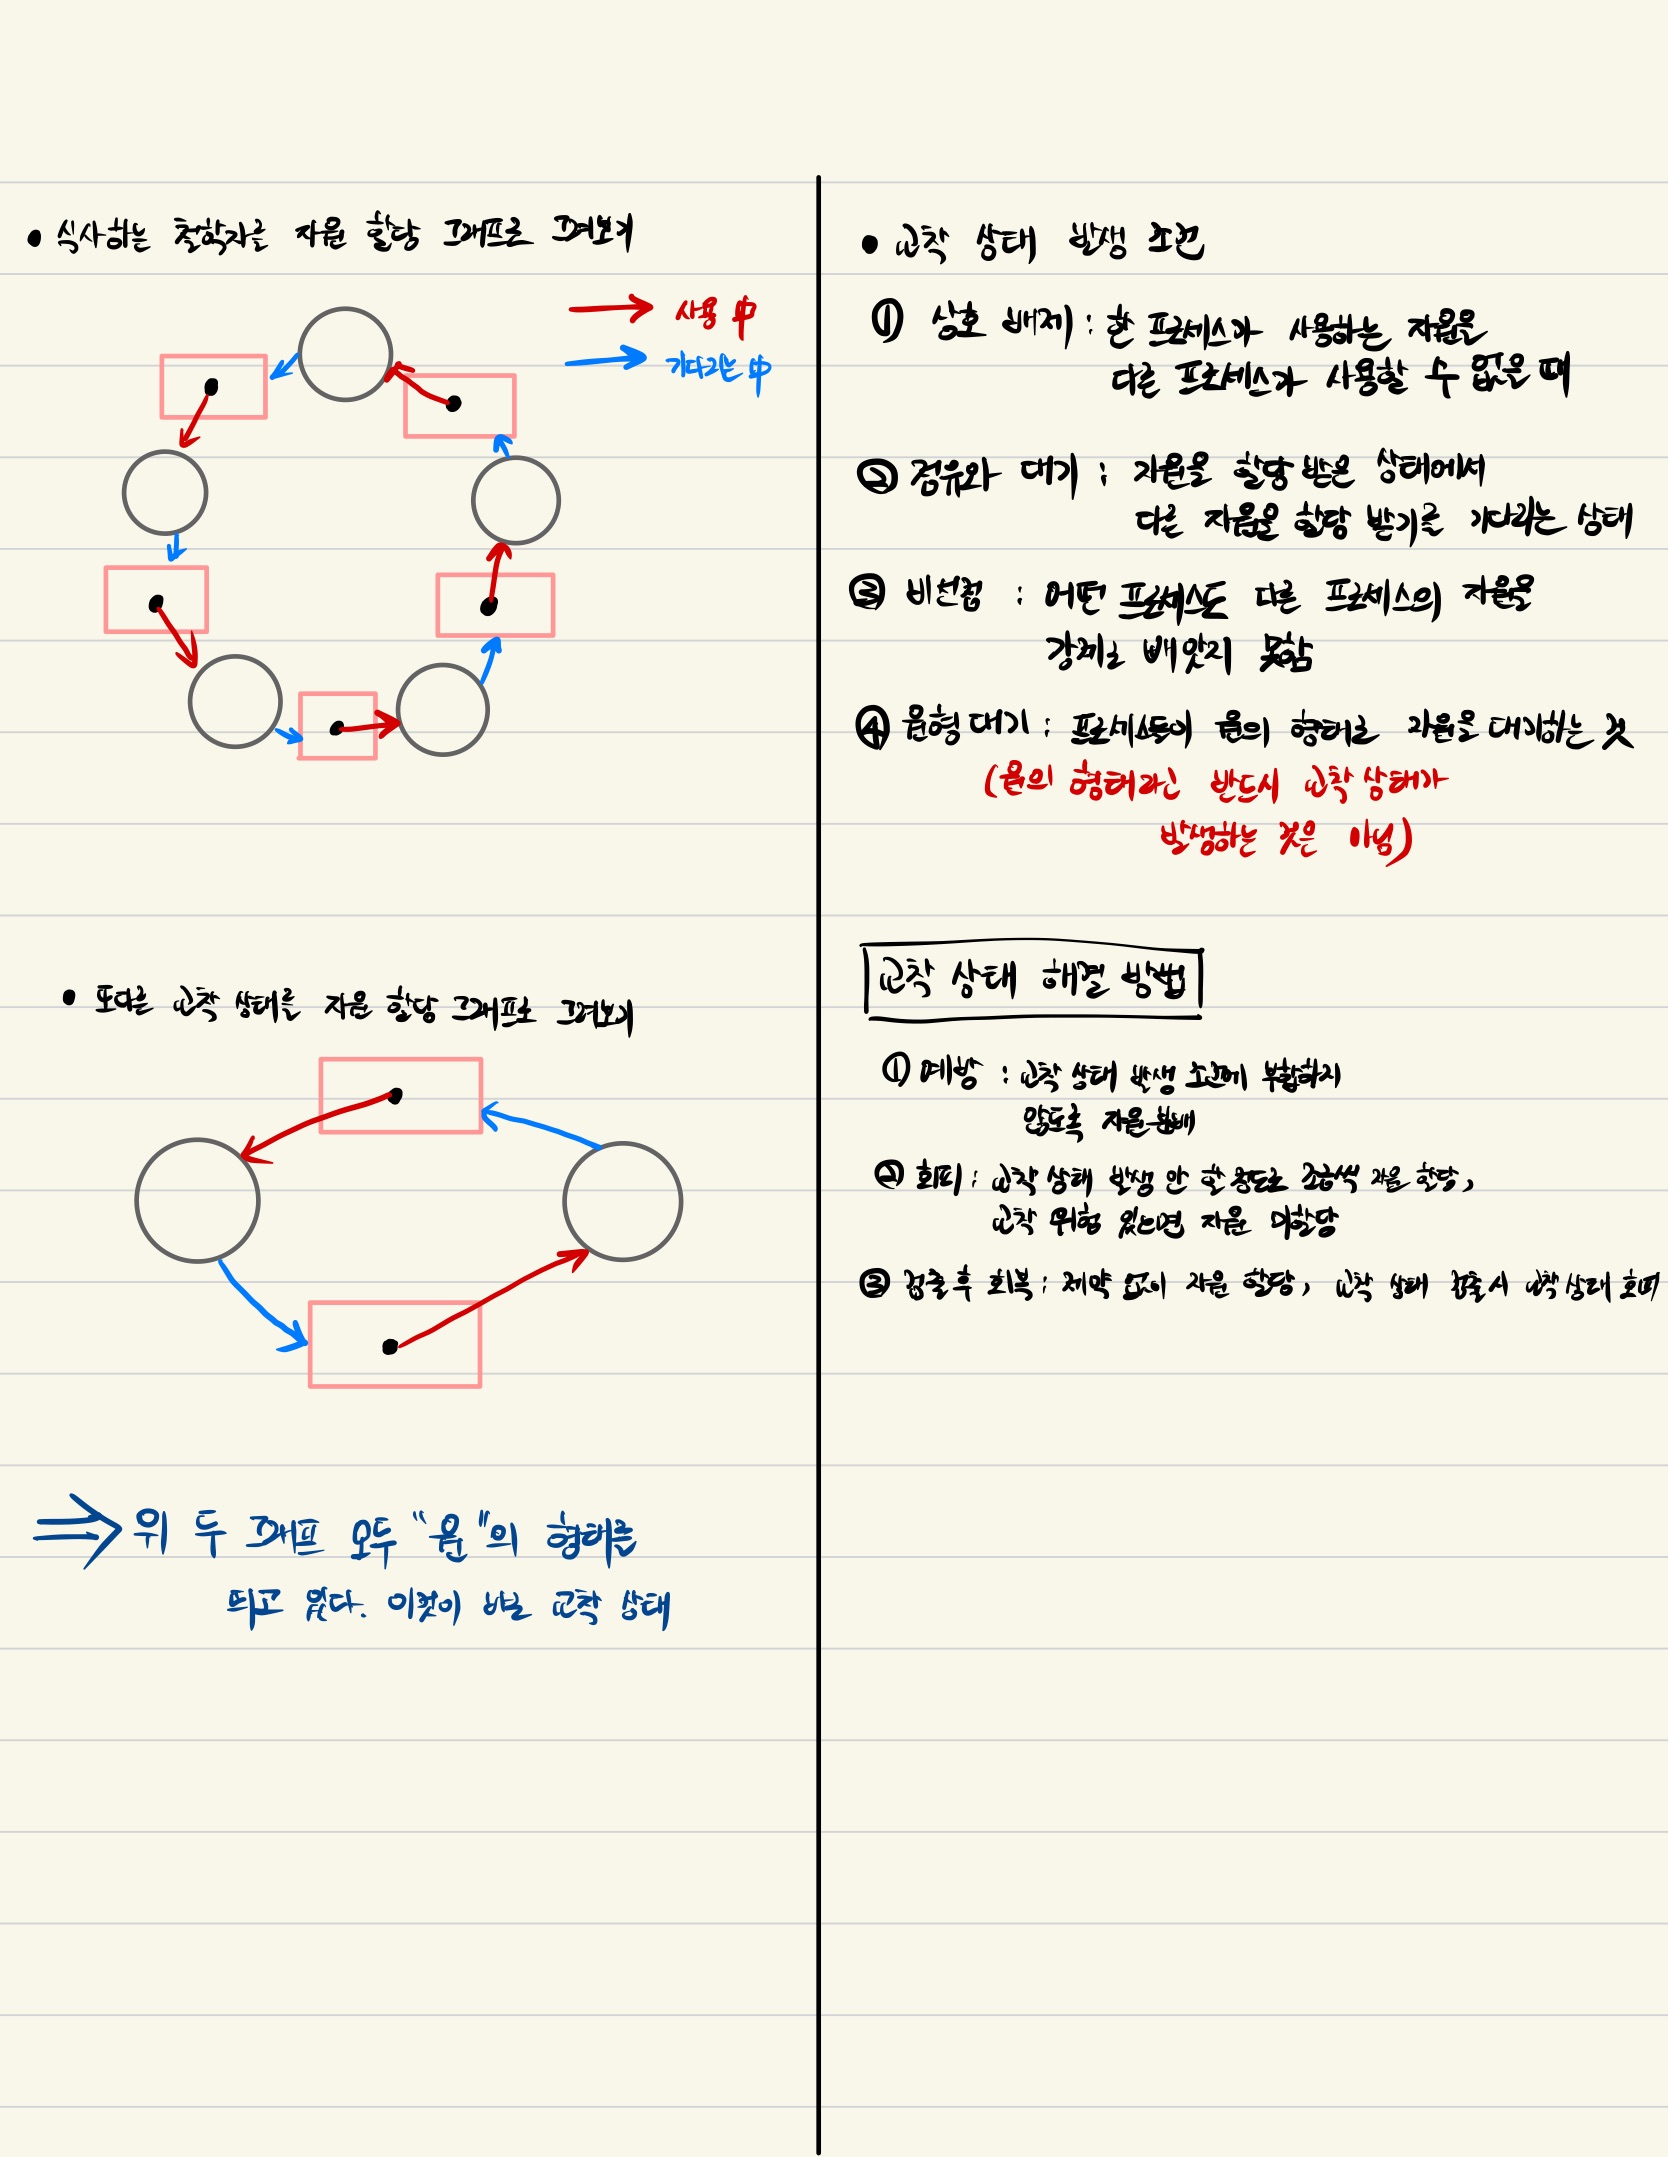 • 식사하는 철학자를 자원 할당 그래프로 그려보기
→ 사용 中
→ 기다리는 中
• 또다른 교착 상태를 자원 할당 그래프로 그려보기
⇒ 위 두 그래프 모두 "원"의 형태를
띄고 있다. 이것이 바로 교착 상태
• 교착 상태 발생 조건
① 상호 배제 : 한 프로세스가 사용하는 자원을
다른 프로세스가 사용할 수 없을 때
② 점유와 대기 : 자원을 할당 받은 상태에서
다른 자원을 할당 받기를 기다리는 상태
③ 비선점 : 어떤 프로세스도 다른 프로세스의 자원을
강제로 빼앗지 못함
④ 원형 대기 : 프로세스들이 원의 형태로 자원을 대기하는 것
(원의 형태라고 반드시 교착 상태가
발생하는 것은 아님)
교착 상태 해결 방법
① 예방 : 교착 상태 발생 조건에 부합하지
않도록 자원 분배
② 회피 : 교착 상태 발생 안 할 정도로 조금씩 자원 할당,
교착 위험 있으면 자원 미할당
③ 검출 후 회복 : 제약 없이 자원 할당, 교착 상태 검출시 교착 상태 회피